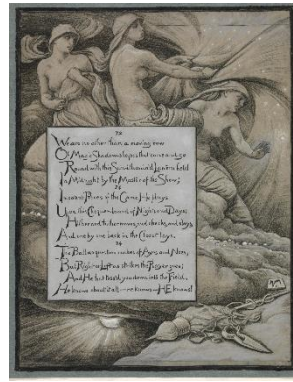 We are no other than a moving row
Of Magic Shadow-shapes that come and go
Round with this Sun-illumin'd Lantern held
In Midnight by the Master of the Show;
Pieces of the Game He plays
Upon this Chequer-board of Nights and Days;
Hither and thither moves, and checks, and slays,
And one by one back in the Closet lays.
The Ball no question makes of Ayes and Noes,
But Right or Left as strikes the Player goes;
And He that toss'd you down into the Field,
He knows about it all — He knows — HE knows!